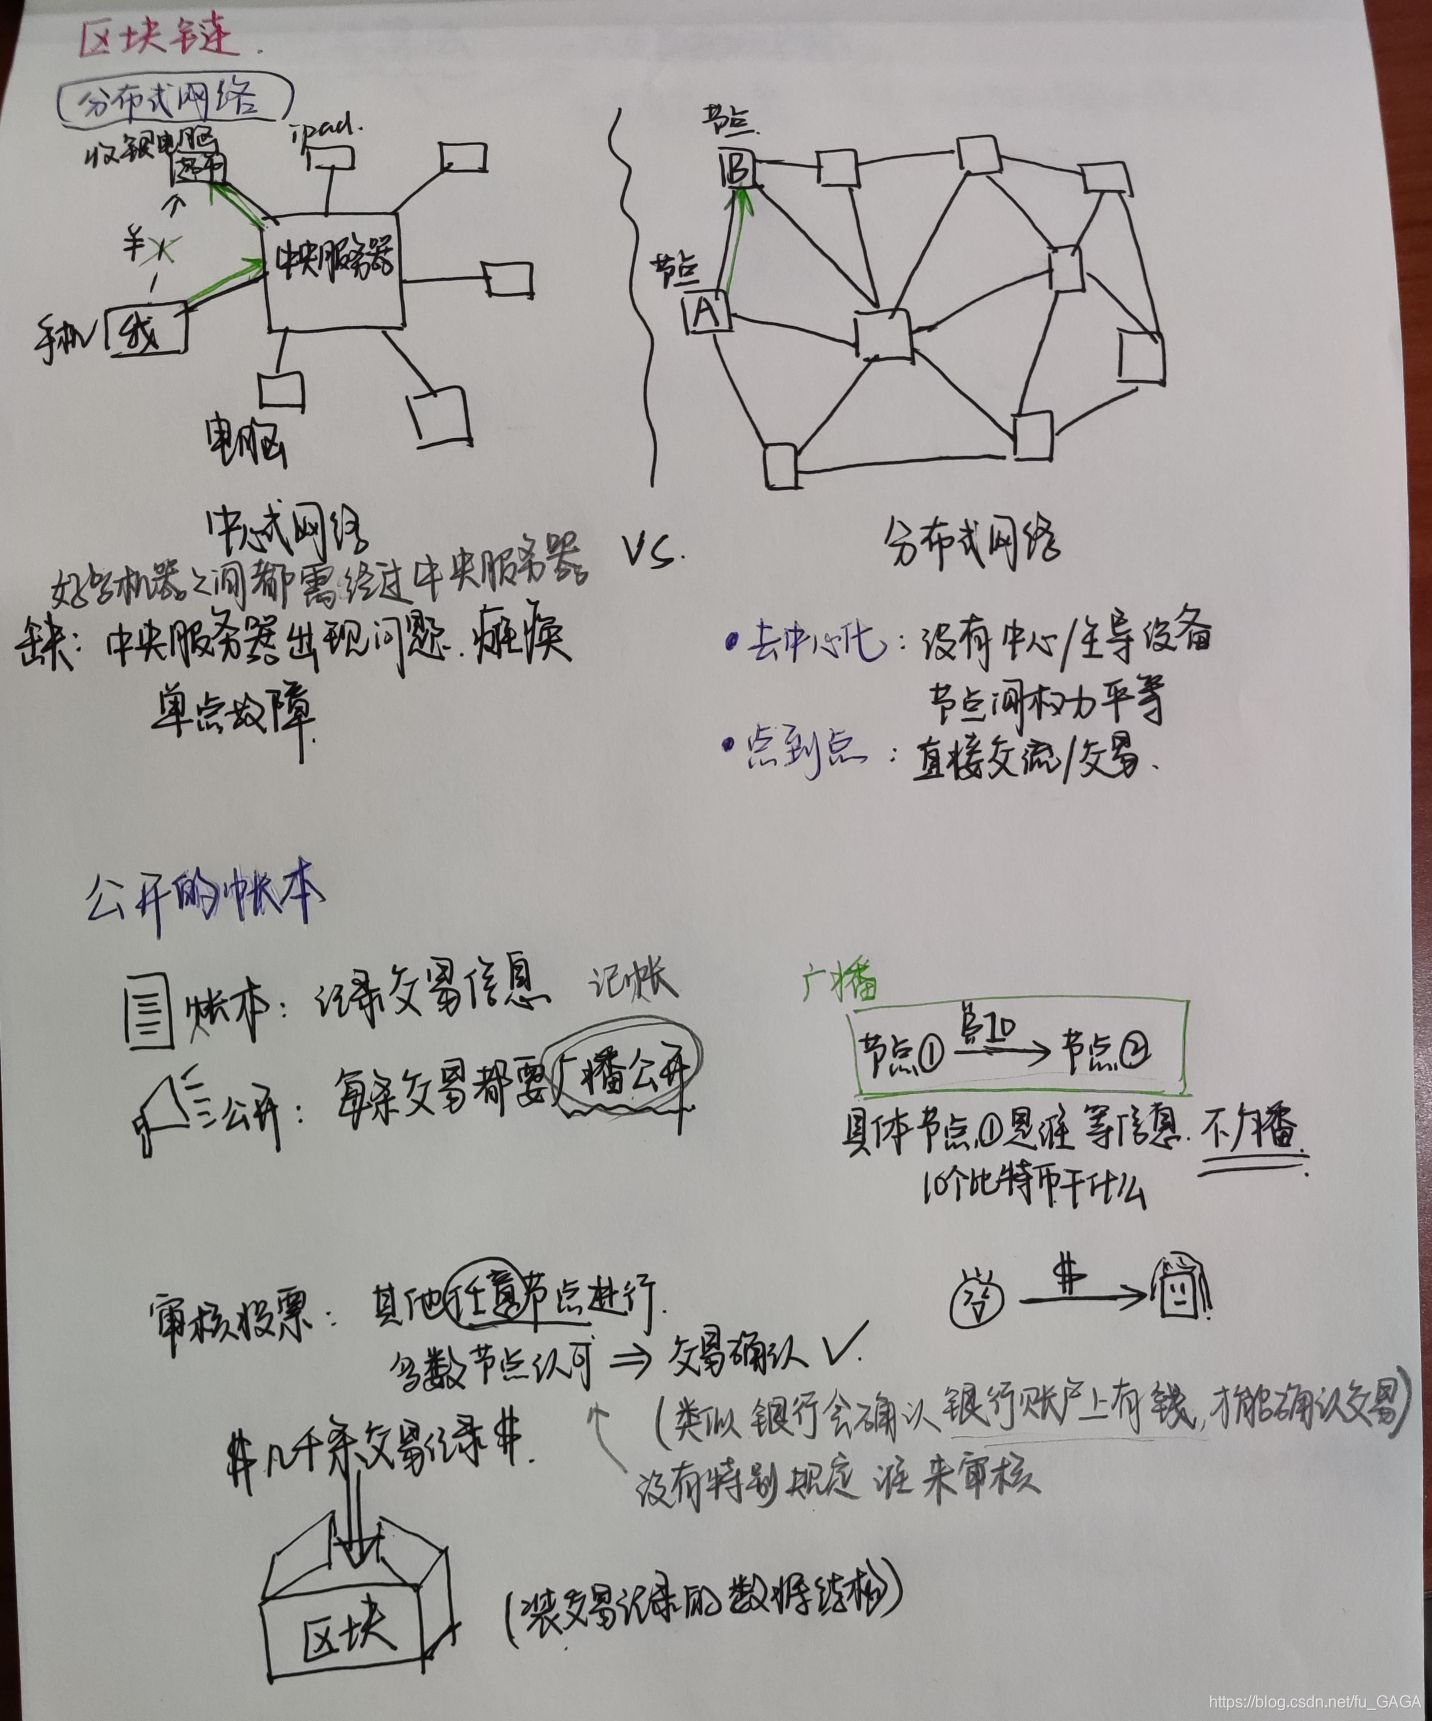 区块链.
分布式网络
收银电脑
超市
ipad.
¥
中央服务器
手机
我
电脑
中心式网络
好多机器之间都需经过中央服务器
缺: 中央服务器出现问题. 瘫痪
单点故障.
VS.
节点.
B
节点
A
分布式网络
•去中心化: 没有中心/主导设备
节点间权力平等
•点到点: 直接交流/交易.
公开的帐本
账本: 记录交易信息 记帐
公开: 每条交易都要广播公开
广播
节点① → 节点②
具体节点①是谁 等信息. 不广播.
10个比特币干什么
$
审核投票: 其他任意节点进行.
多数节点认可 ⇒ 交易确认 ✓.
(类似银行会确认银行账户上有钱,才能确认交易)
没有特别规定谁来审核
$几千条交易记录$.
区块
(装交易记录的数据结构)
https://blog.csdn.net/fu_GAGA